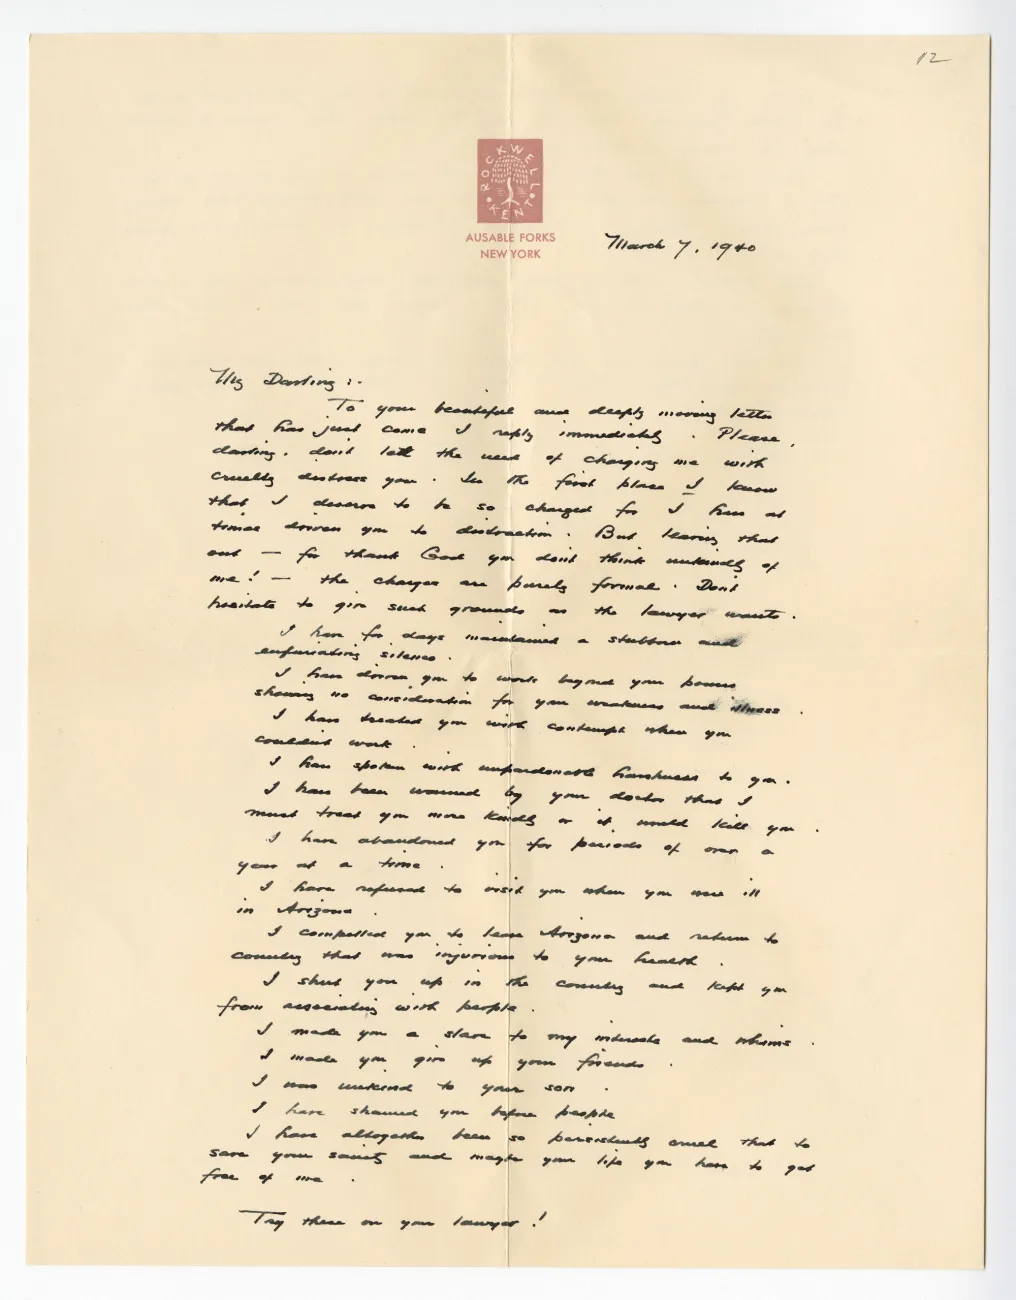 12
ROCKWELL
KENT
AUSABLE FORKS
NEW YORK
March 7, 1940
My Darling:-
To your beautiful and deeply moving letter
that has just come I reply immediately. Please,
darling, don't let the need of charging me with
cruelty distress you. In the first place I know
that I deserve to be so charged for I have at
times driven you to distraction. But leaving that
out — for thank God you don't think unkindly of
me! — the charges are purely formal. Don't
hesitate to give such grounds as the lawyer wants.
I have for days maintained a stubborn and
enfuriating silence.
I have driven you to work beyond your powers
showing no consideration for your weakness and illness.
I have treated you with contempt when you
couldn't work.
I have spoken with unpardonable harshness to you.
I have been warned by your doctor that I
must treat you more kindly or it would kill you.
I have abandoned you for periods of over a
year at a time.
I have refused to visit you when you were ill
in Arizona.
I compelled you to leave Arizona and return to
country that was injurious to your health.
I shut you up in the country and kept you
from associating with people.
I made you a slave to my interests and whims.
I made you give up your friends.
I was unkind to your son.
I have shamed you before people
I have altogether been so persistently cruel that to
save your sanity and maybe your life you have to get
free of me.
Try these on your lawyer!